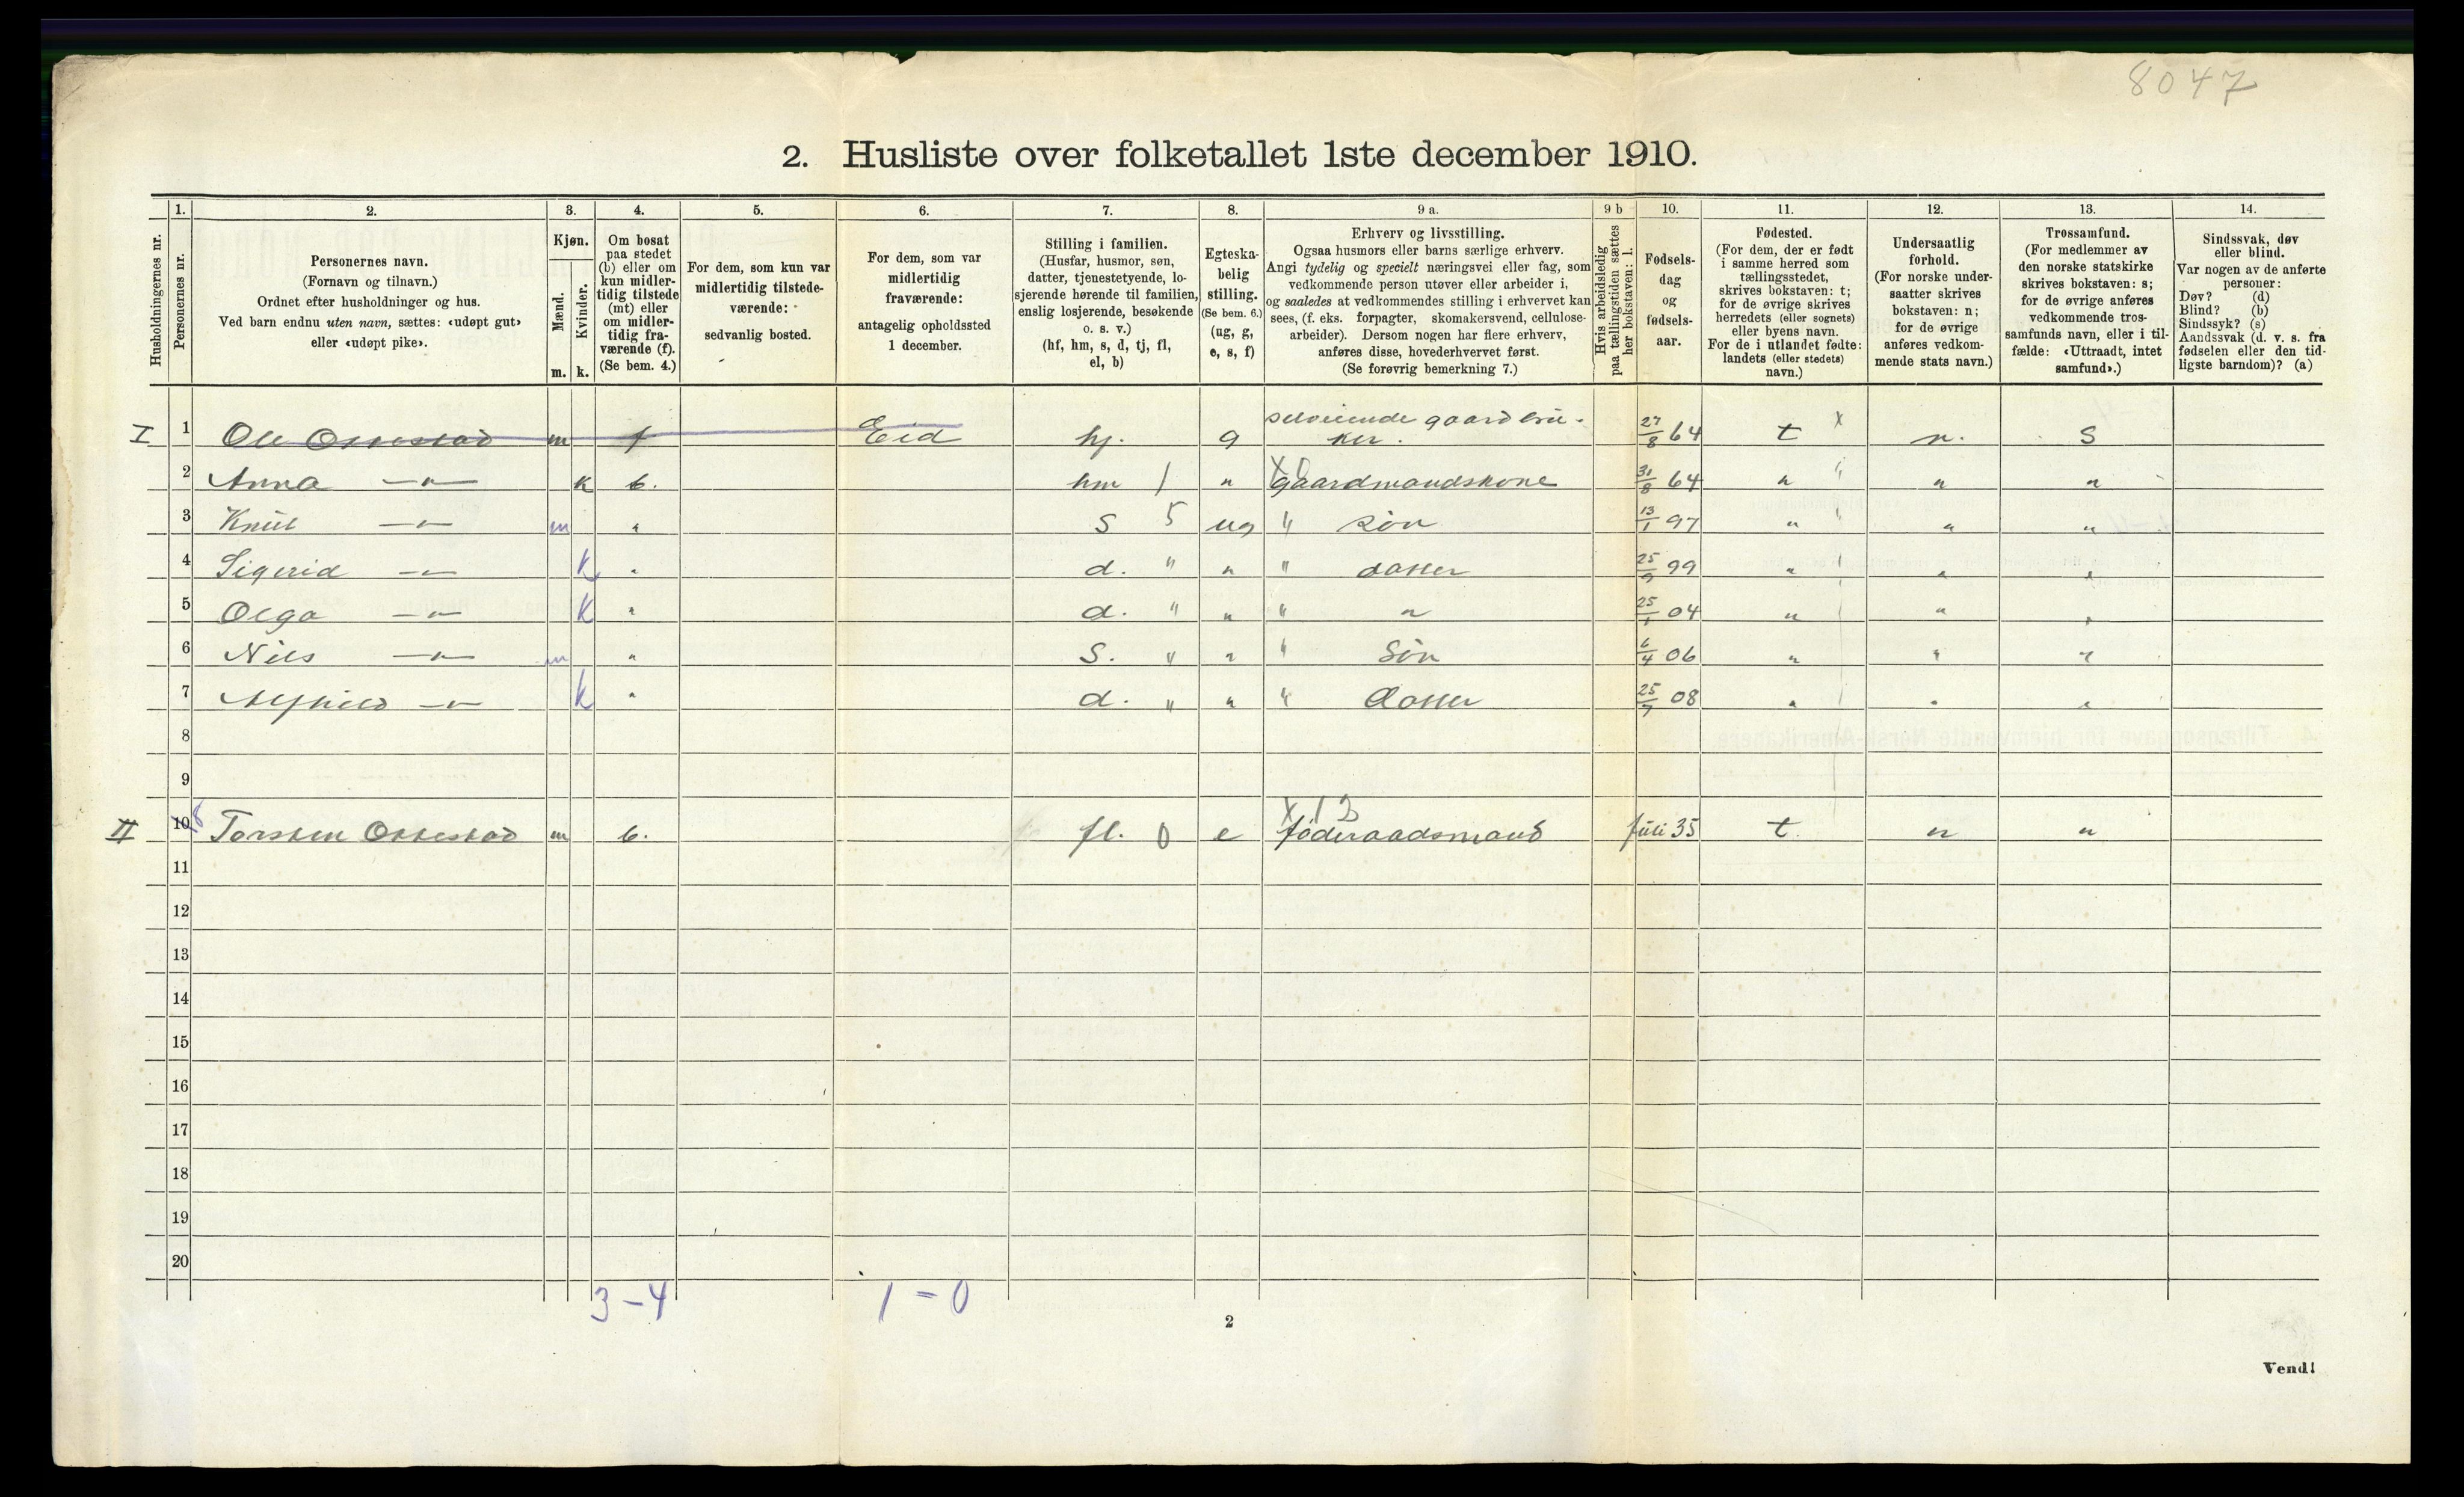 8047
2. Husliste over folketallet 1ste december 1910.
1. 2. 3. 4. 5. 6. 7. 8. 9 a. 9 b 10. 11. 12. 13. 14.
Husholdningernes nr.
Personernes nr.
Personernes navn.
(Fornavn og tilnavn.)
Ordnet efter husholdninger og hus.
Ved barn endnu uten navn, sættes: «udøpt gut»
eller «udøpt pike».
Kjøn.
Mænd.
Kvinder.
m. k.
Om bosat
paa stedet
(b) eller om
kun midler-
tidig tilstede
(mt) eller
om midler-
tidig fra-
værende (f).
(Se bem. 4.)
For dem, som kun var
midlertidig tilstede-
værende:
sedvanlig bosted.
For dem, som var
midlertidig
fraværende:
antagelig opholdssted
1 december.
Stilling i familien.
(Husfar, husmor, søn,
datter, tjenestetyende, lo-
sjerende hørende til familien,
enslig losjerende, besøkende
o. s. v.)
(hf, hm, s, d, tj, fl,
el, b)
Egteska-
belig
stilling.
(Se bem. 6.)
(ug, g,
e, s, f)
Erhverv og livsstilling.
Ogsaa husmors eller barns særlige erhverv.
Angi tydelig og specielt næringsvei eller fag, som
vedkommende person utøver eller arbeider i,
og saaledes at vedkommendes stilling i erhvervet kan
sees, (f. eks. forpagter, skomakersvend, cellulose-
arbeider). Dersom nogen har flere erhverv,
anføres disse, hovederhvervet først.
(Se forøvrig bemerkning 7.)
Hvis arbeidsledig
paa tællingstiden sættes
her bokstaven: l.
Fødsels-
dag
og
fødsels-
aar.
Fødested.
(For dem, der er født
i samme herred som
tællingsstedet,
skrives bokstaven: t;
for de øvrige skrives
herredets (eller sognets)
eller byens navn.
For de i utlandet fødte:
landets (eller stedets)
navn.)
Undersaatlig
forhold.
(For norske under-
saatter skrives
bokstaven: n;
for de øvrige
anføres vedkom-
mende stats navn.)
Trossamfund.
(For medlemmer av
den norske statskirke
skrives bokstaven: s;
for de øvrige anføres
vedkommende tros-
samfunds navn, eller i til-
fælde: «Uttraadt, intet
samfund».)
Sindssvak, døv
eller blind.
Var nogen av de anførte
personer:
Døv? (d)
Blind? (b)
Sindssyk? (s)
Aandssvak (d. v. s. fra
fødselen eller den tid-
ligste barndom)? (a)
I 1 Ole m f Eid hf. g selveiende gaardbru-
ker. 27/8 64 t x n. s
2 Anna —"— k b. hm 1 " x1 gaardmandskone 31/8 64 " " " "
3 Knut —"— m " s 5 ug " søn 13/1 97 " " " "
4 Sigerid —"— K " d. " " " datter 25/9 99 " " "
5 Olga —"— K " d. " " " " 25/1 04 " " "
6 Nils —"— m " S. " " " Søn 6/4 06 " " "
7 —"— k " d. " " " Datter 25/7 08 " " "
8
9
II 10 8 Torsten m b. fl. 0 e x 1 3 føderaadsmand juli 35 t. n "
11
12
13
14
15
16
17
18
19
20
3 – 4 1 – 0
2
Vend!